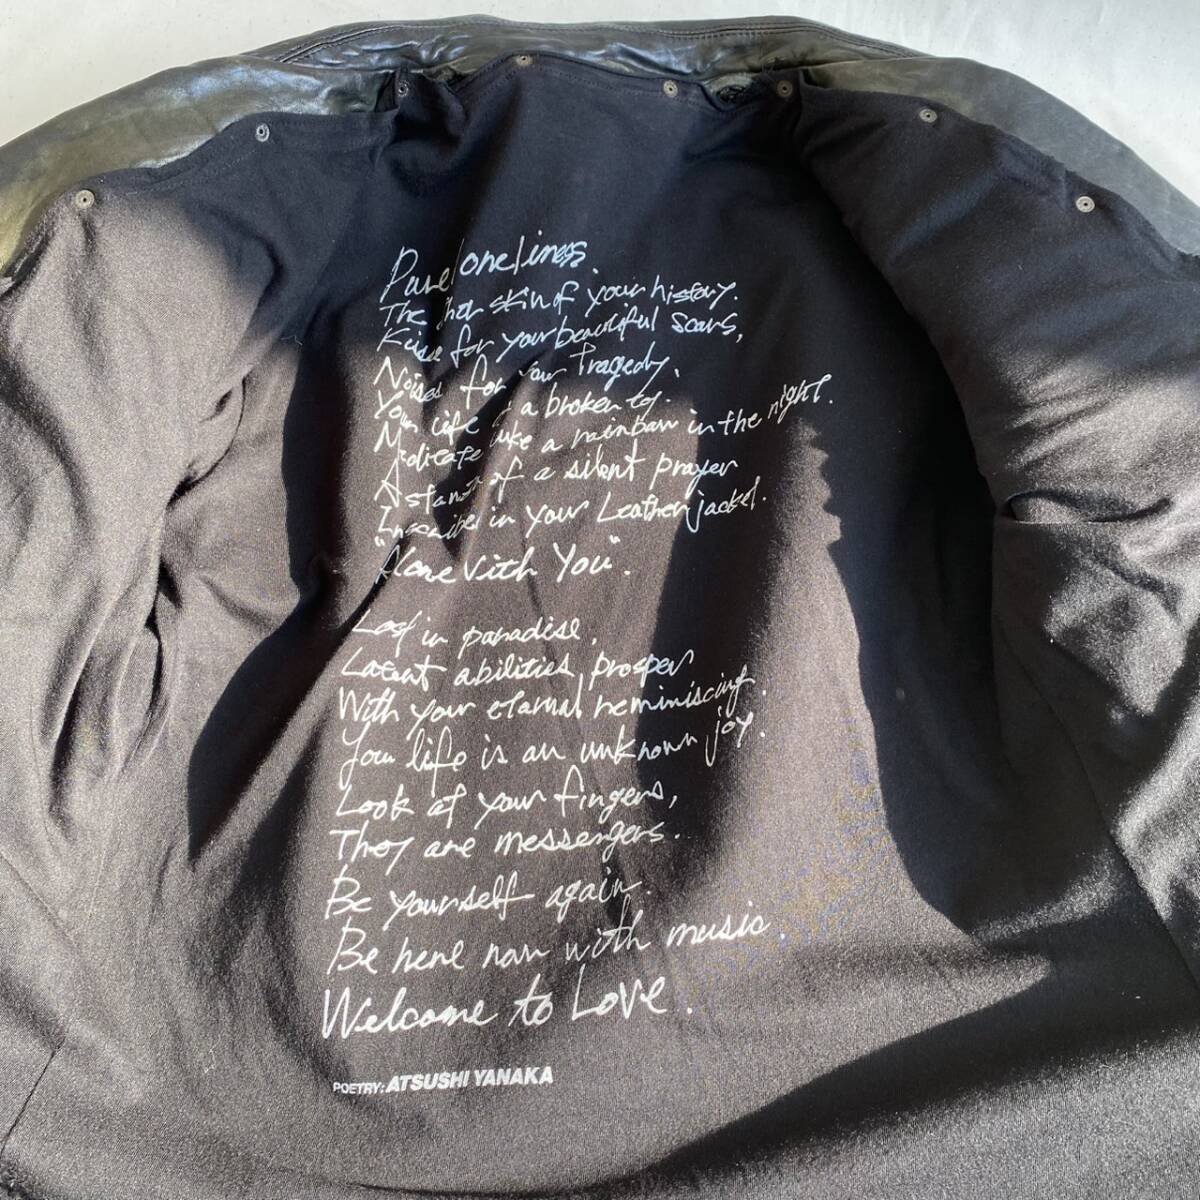 Pure loneliness.
The other skin of your history.
Kiss for your beautiful scars,
Noises for your Tragedy.
Your life is a broken toy.
Meditate like a rainbow in the night.
A stanza of a silent prayer
Inscribed in your Leather jacket.
"Alone With You".
Lost in paradise,
Latent abilities prosper
With your eternal reminiscing.
Your life is an unknown joy.
Look at your fingers,
They are messengers.
Be yourself again.
Be here now with music.
Welcome to Love.
POETRY: ATSUSHI YANAKA